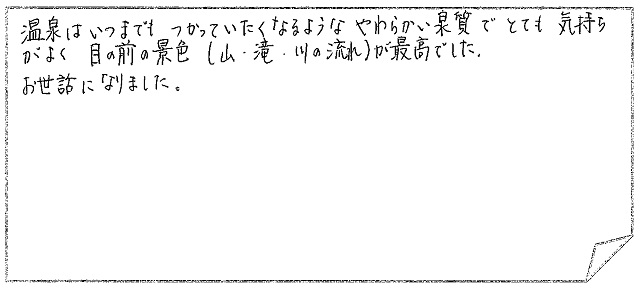 温泉はいつまでも つかっていたくなるような やわらかい泉質で とても 気持ち
がよく 目の前の景色 (山・滝・川の流れ)が最高でした.
お世話になりました。